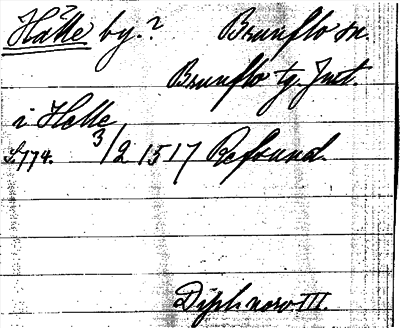 Hälle by.? Brunflo sn.
Brunflo tg. Jmt.
i Helle
S.774. 3/2 1517 Refsund.
Dipl. norv III.